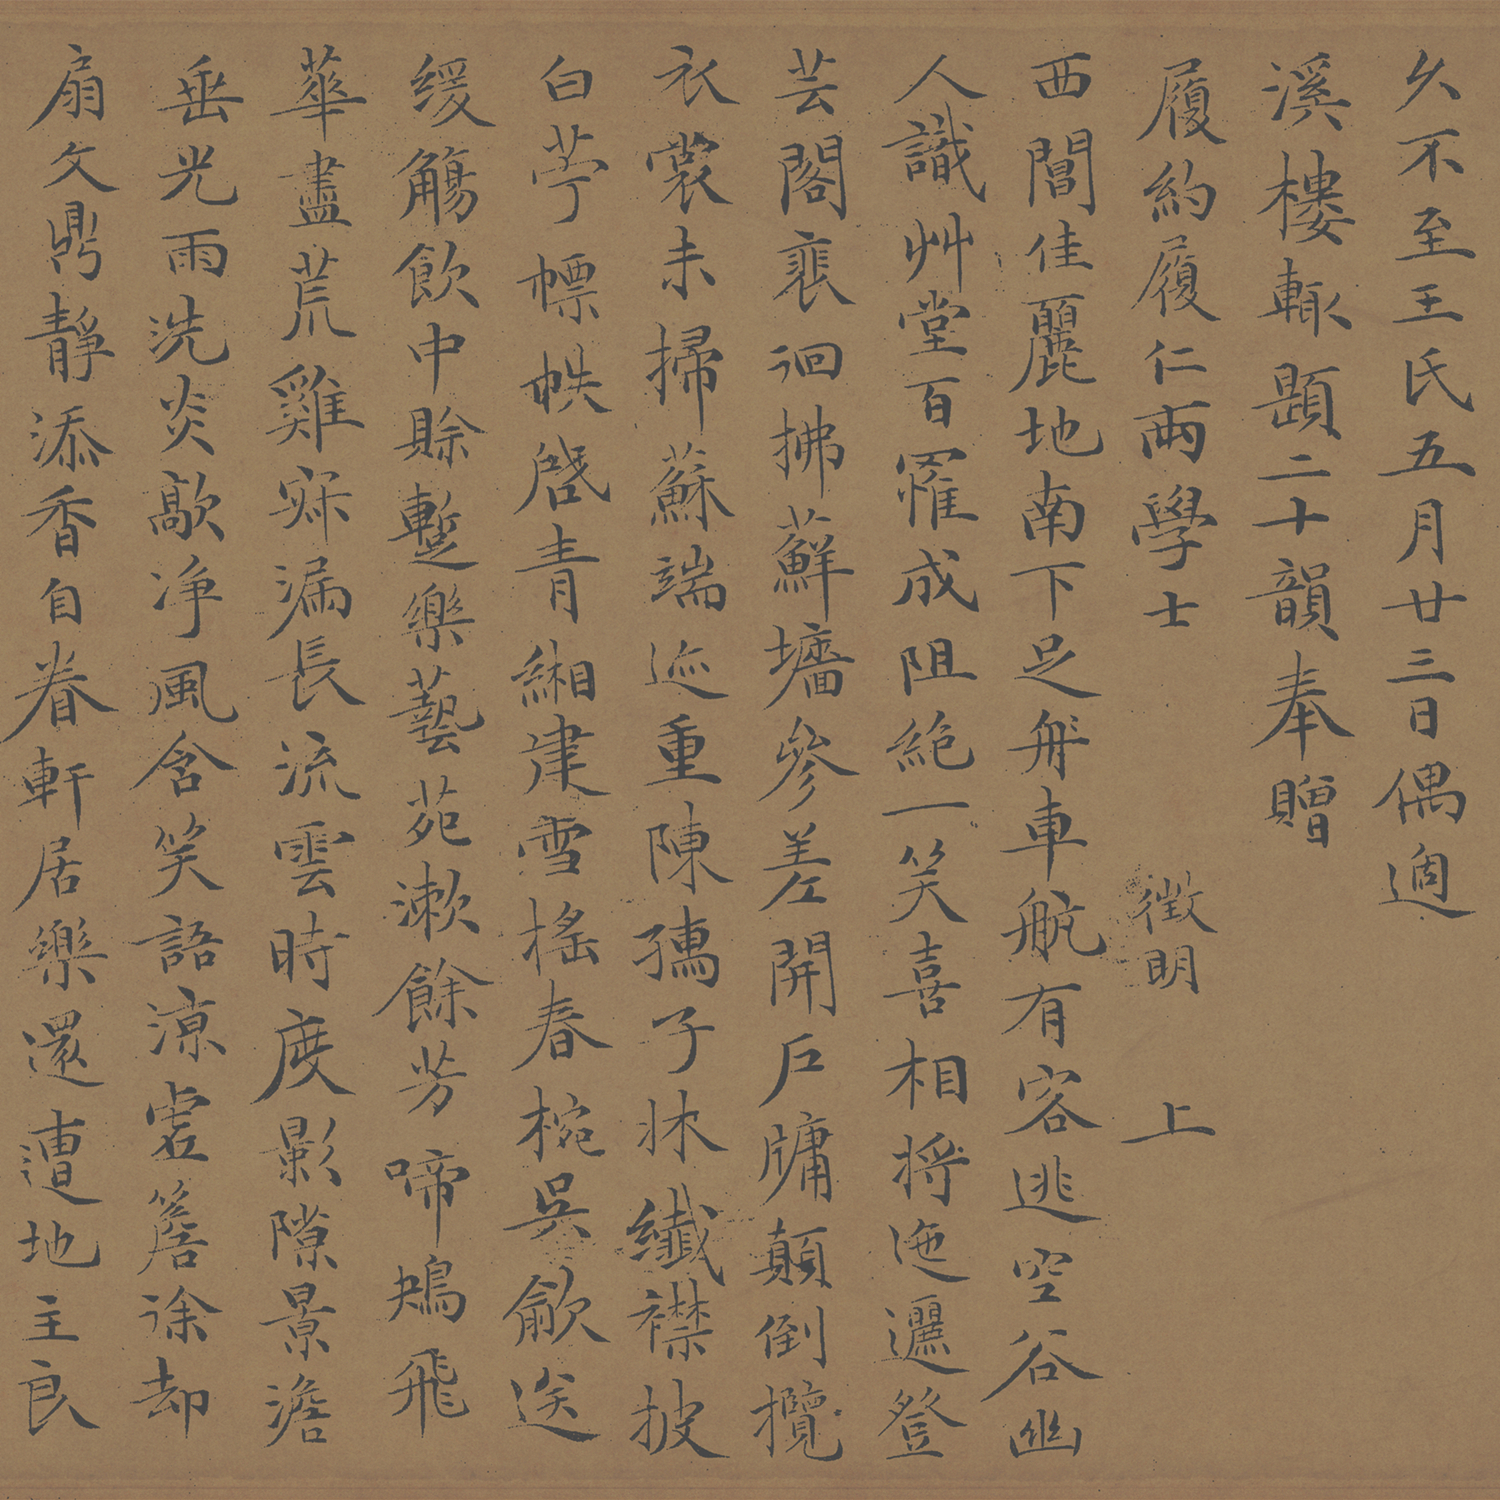 久不至王氏五月廿三日偶過
溪樓輙題二十韻奉贈
履約履仁兩學士
徵明 上
西閶佳麗地南下足舟車航有客逃空谷幽
人識艸堂百罹成阻絶一笑喜相將迤邐登
芸閣裵徊拂蘚墻參差開戶牖顛倒攬
衣裳未掃蘇端迹重陳孺子牀纖襟披
白苧幖帙啓青緗建雪搖春椀吳歈送
緩觴飲中賒蹔樂藝苑漱餘芳啼鴂飛
華盡荒雞寐漏長流雲時度影隙景澹
垂光雨洗炎歊净風含笑語涼虗簷徐却
扇文鼎靜添香自眷軒居樂還遭地主良